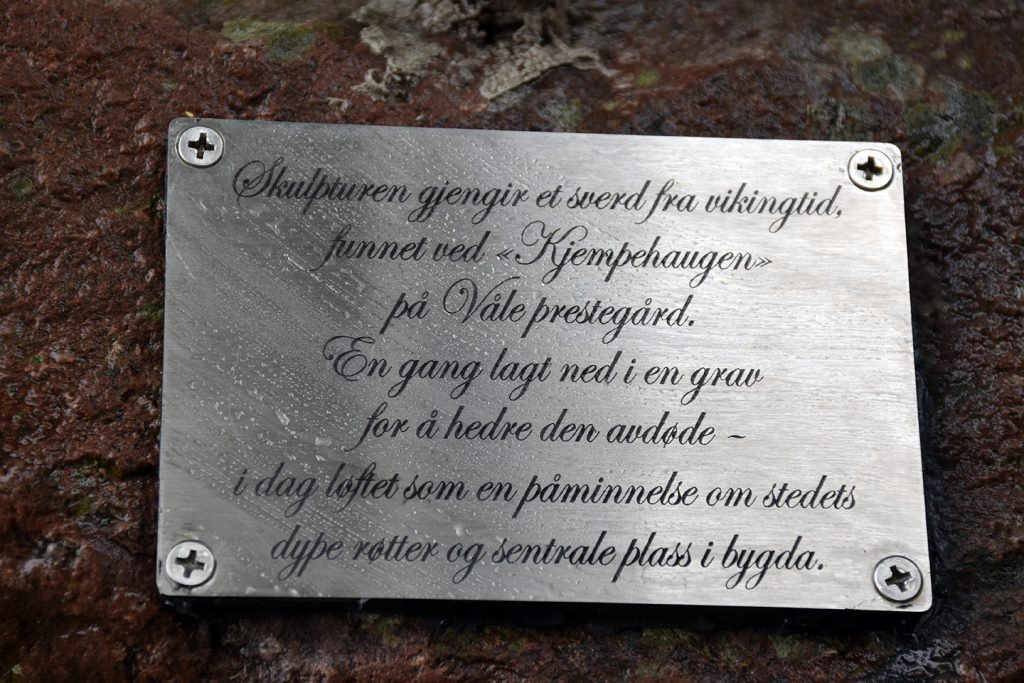 Skulpturen gjengir et sverd fra vikingtid,
funnet ved «Kjempehaugen»
på Våle prestegård.
En gang lagt ned i en grav
for å hedre den avdøde ~
i dag løftet som en påminnelse om stedets
dype røtter og sentrale plass i bygda.